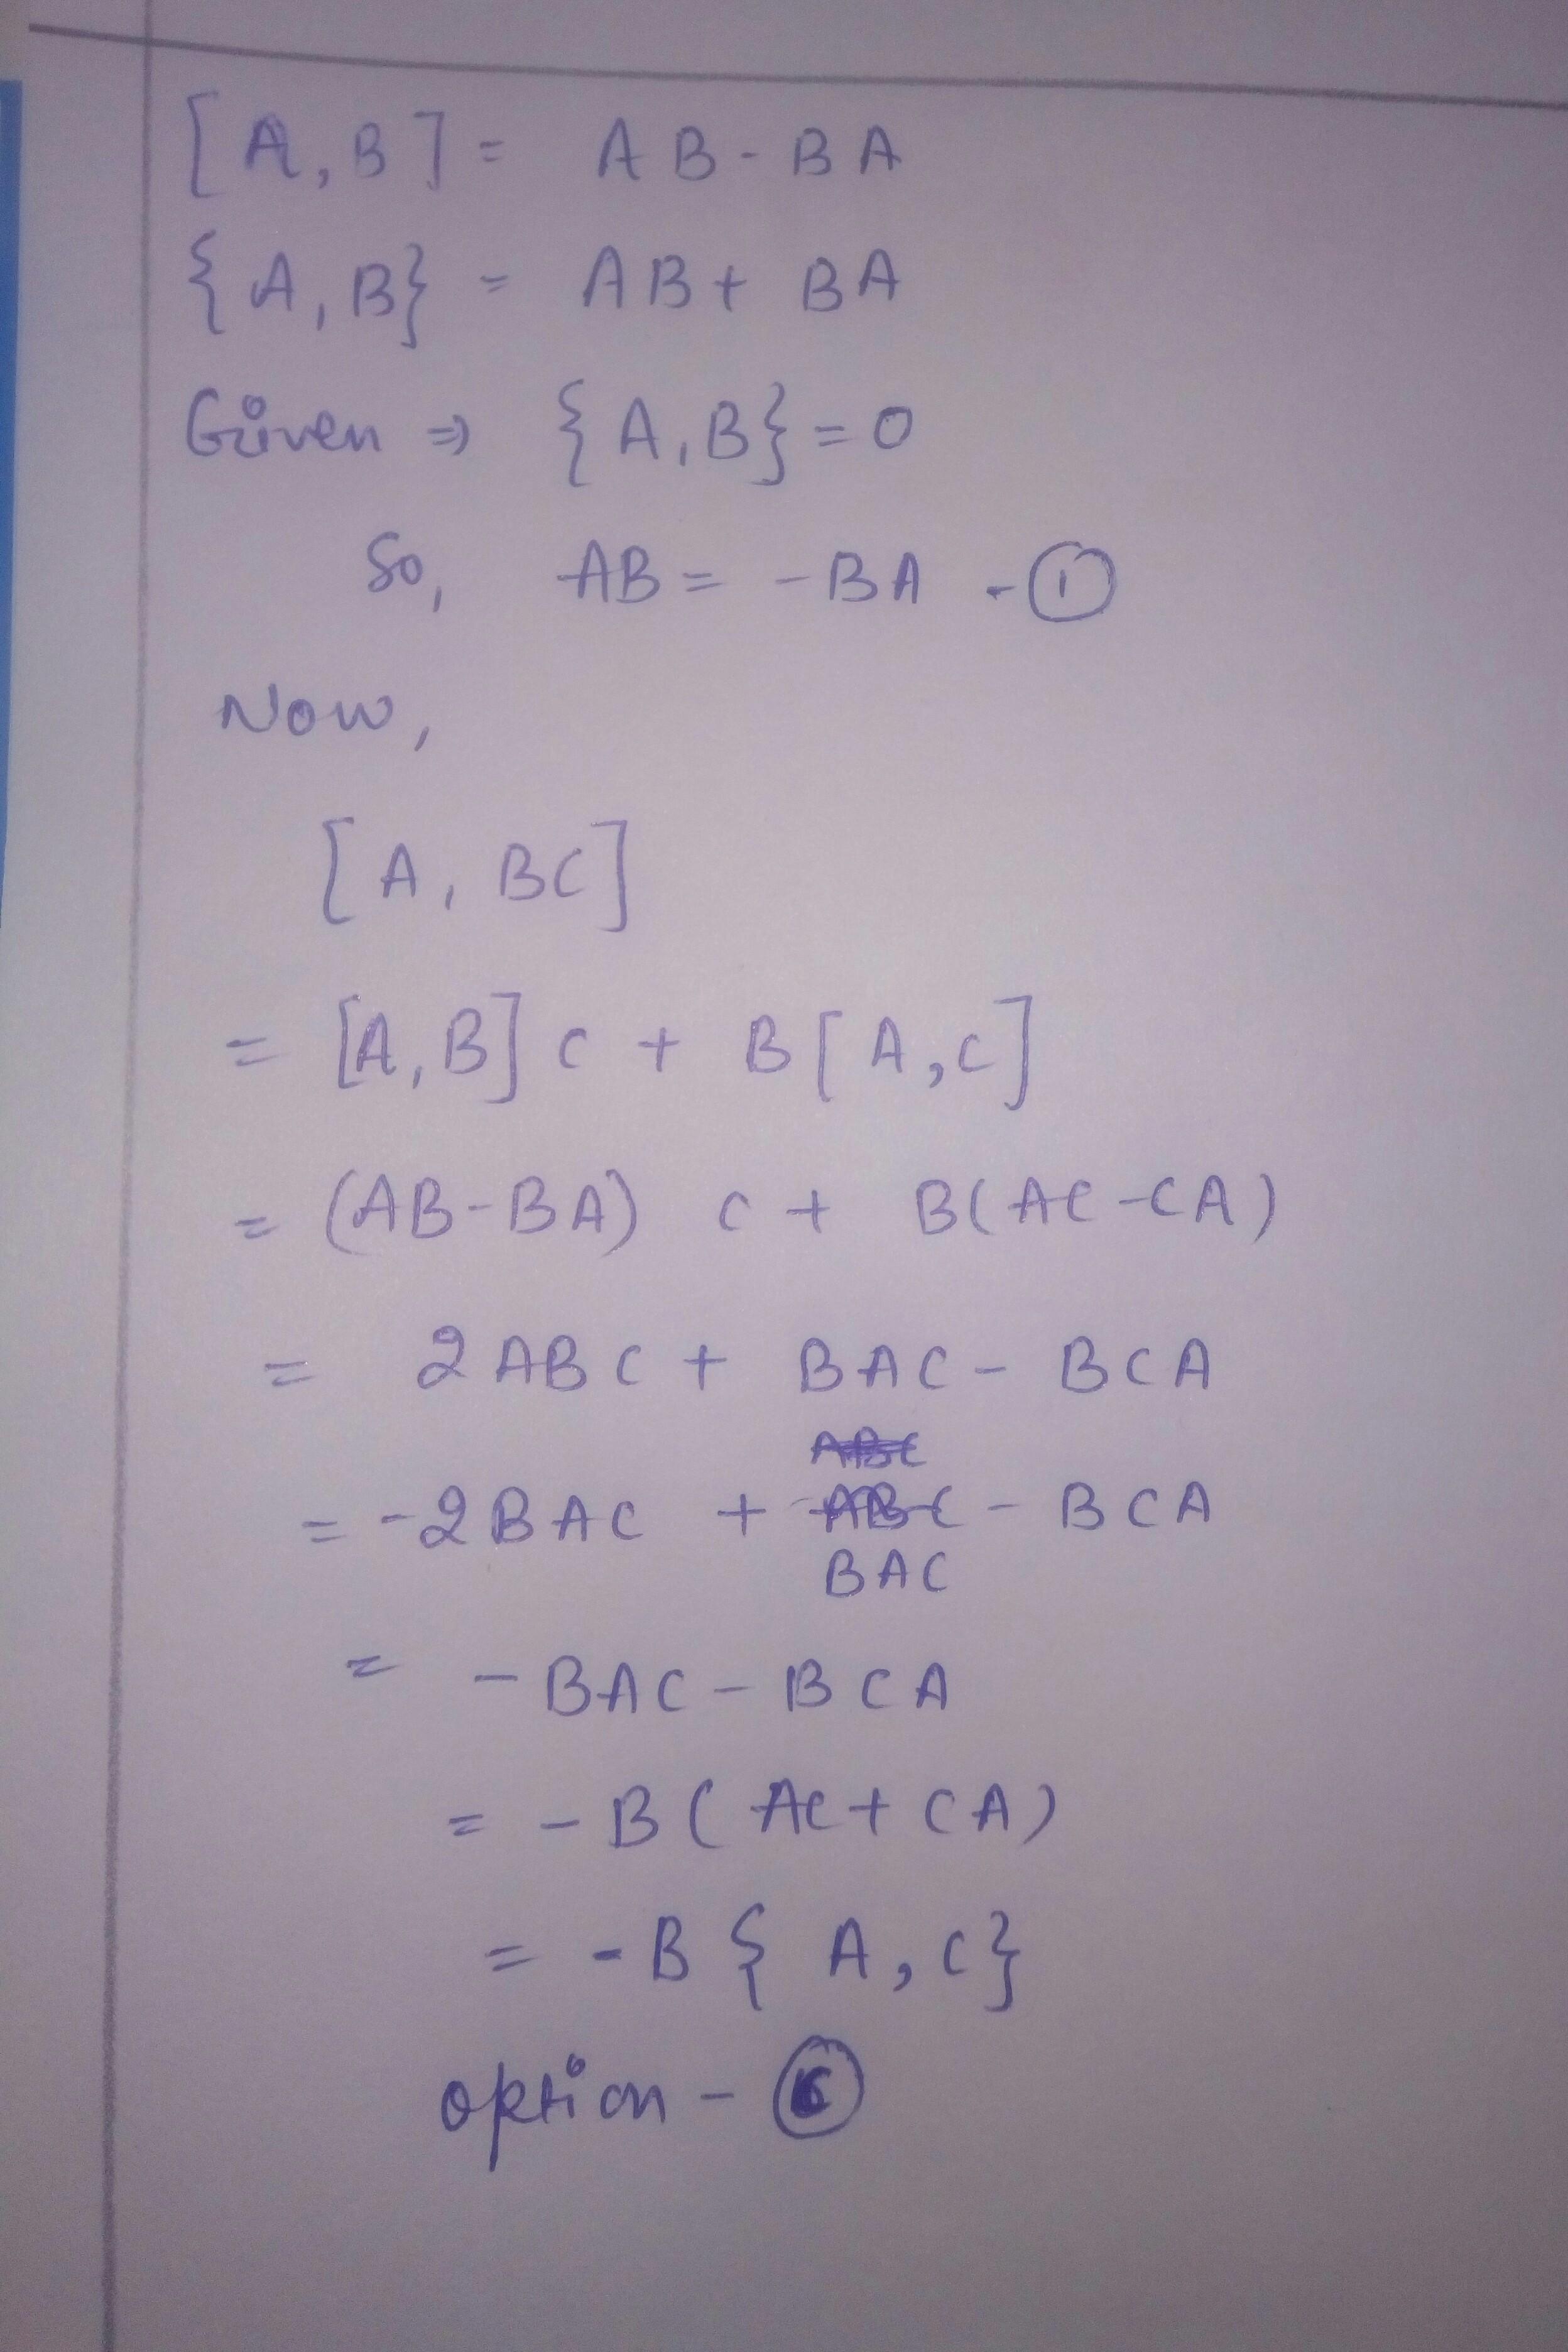 [A,B] = AB - BA
{A,B} = AB + BA
Given ⇒ {A,B} = 0
So, AB = -BA - ①
Now,
[A, BC]
= [A,B] C + B[A,C]
= (AB-BA) C + B(AC-CA)
= 2ABC + BAC - BCA
= -2BAC + BAC - BCA
= -BAC - BCA
= -B(AC + CA)
= -B{A,C}
option -